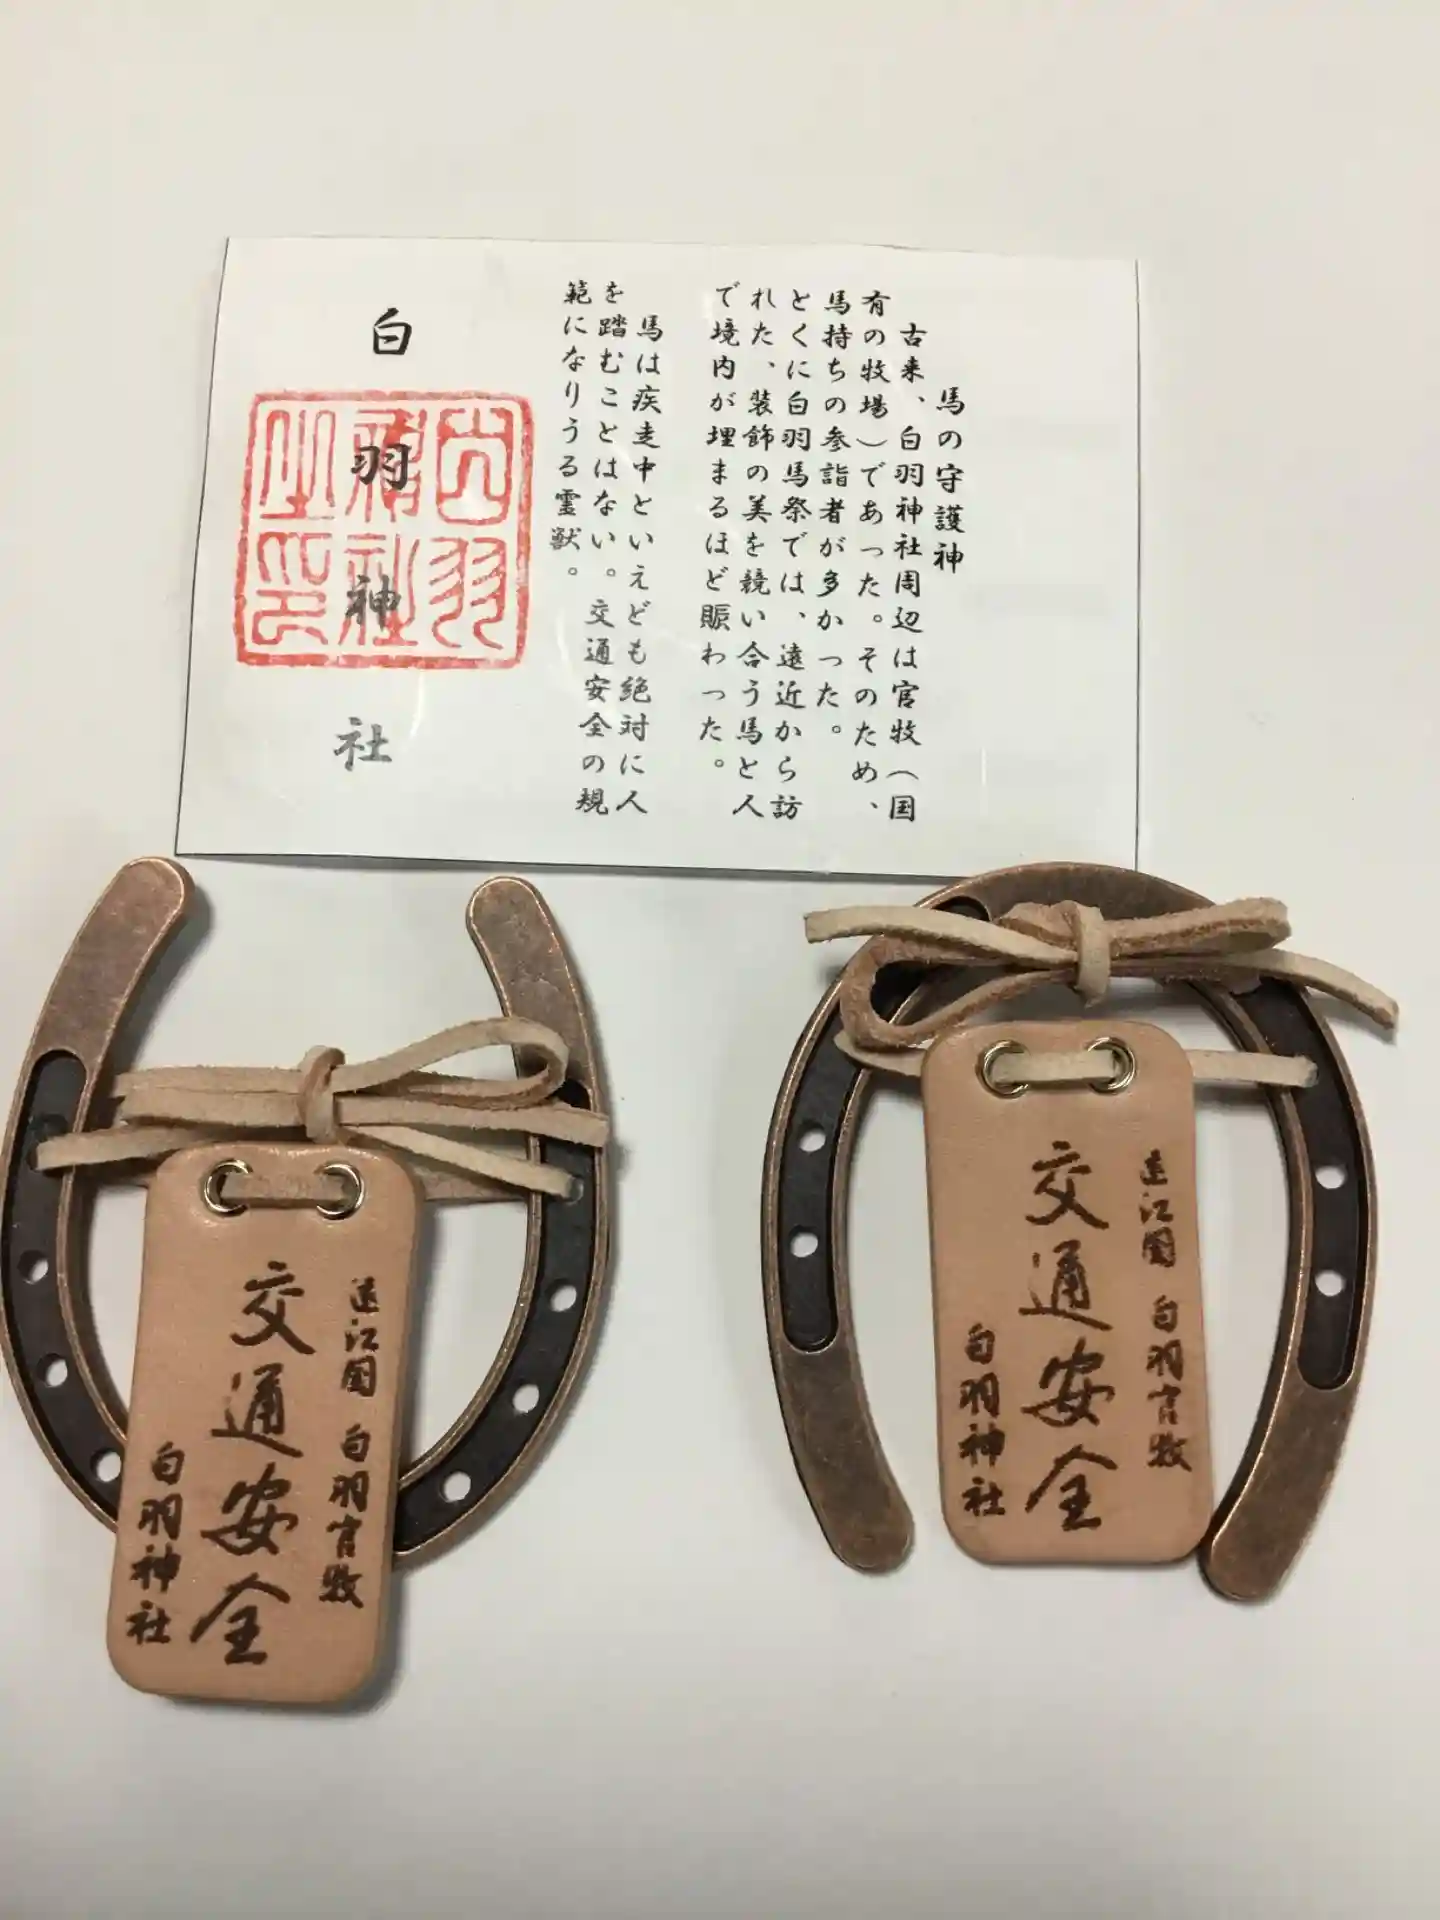 馬の守護神
古来、白羽神社周辺は官牧（国
有の牧場）であった。そのため、
馬持ちの参詣者が多かった。
とくに白羽馬祭では、遠近から訪
れた、装飾の美を競い合う馬と人
で境内が埋まるほど賑わった。
馬は疾走中といえども絶対に人
を踏むことはない。交通安全の規
範になりうる霊獣。
白羽神社
白羽
神社
之印
遠江國 白羽官牧
交通安全
白羽神社
遠江國 白羽官牧
交通安全
白羽神社